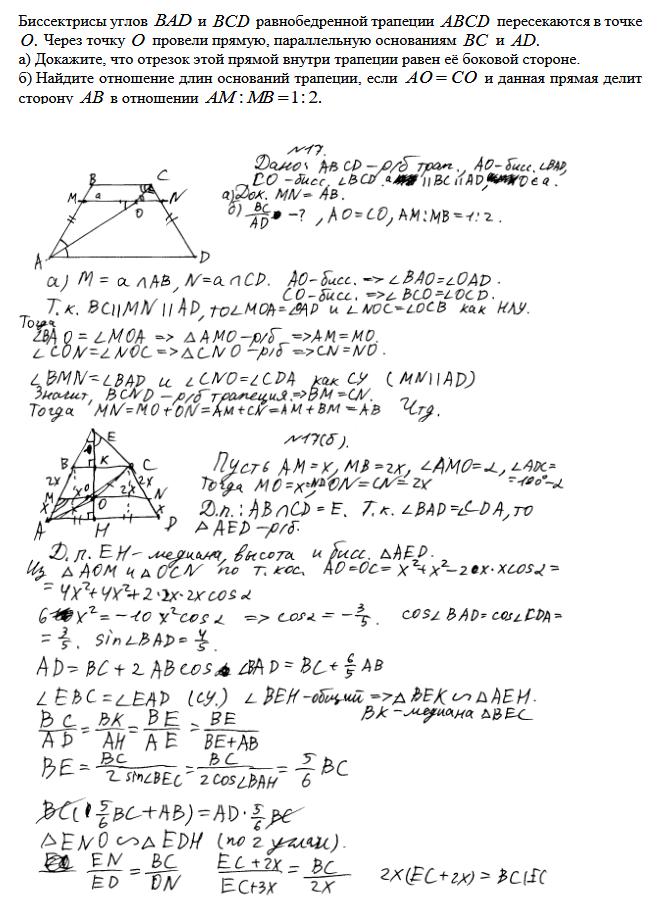 Биссектрисы углов BAD и BCD равнобедренной трапеции ABCD пересекаются в точке
O. Через точку O провели прямую, параллельную основаниям BC и AD.
а) Докажите, что отрезок этой прямой внутри трапеции равен её боковой стороне.
б) Найдите отношение длин оснований трапеции, если AO = CO и данная прямая делит
сторону AB в отношении AM : MB = 1 : 2.
№17.
Дано: ABCD – р/б трап., AO-бисс. ∠BAD,
CO-бисс. ∠BCD. a ∥BC∥AD, O∈a.
а) Док. MN = AB.
б) BC/AD -?, AO=CO, AM:MB=1:2.
B C
M a N
O
A D
а) M = a∩AB, N=a∩CD. AO-бисс. => ∠BAO=∠OAD.
CO-бисс. => ∠BCO=∠OCD.
Т.к. BC∥MN∥AD, то ∠MOA=∠OAD и ∠NOC=∠OCB как НЛУ.
Тогда
∠BAO=∠MOA => △AMO-р/б =>AM=MO.
∠CON=∠NOC=>△CNO-р/б =>CN=NO.
∠BMN=∠BAD и ∠CNO=∠CDA как СУ (MN∥AD)
Значит, BCND-р/б трапеция.=>BM=CN.
Тогда MN=MO+ON=AM+CN=AM+BM=AB Чтд.
№17(б).
E
B K C
2x 2x
M x O 2x N
x x
A H D
Пусть AM=x, MB=2x, ∠AMO=α, ∠ADC=
=180°-α
Тогда MO=x, ON=CN=2x
Д.п.: AB∩CD=E. Т.к. ∠BAD=∠CDA, то
△AED-р/б.
Д.п. EH-медиана, высота и бисс. △AED.
Из △AOM и △OCN по т. кос. AO=OC=x²+x²-2x·xcosα=
=4x²+4x²+2·2x·2xcosα
6x²=-10x²cosα => cosα=-3/5. cos∠BAD=cos∠CDA=
=3/5. sin∠BAD=4/5.
AD=BC+2ABcos∠BAD=BC+6/5 AB
∠EBC=∠EAD (су.) ∠BEH-общий =>△BEK∽△AEH.
BK-медиана △BEC
BC/AD=BK/AH=BE/AE=BE/(BE+AB)
BE=BC/(2sin∠BEC)=BC/(2cos∠BAH)=5/6 BC
BC(5/6 BC+AB)=AD·5/6 BC
△ENO∽△EDH (по 2 углам).
EN/ED=BC/ON (EC+2x)/(EC+3x)=BC/2x 2x(EC+2x)=BC(EC